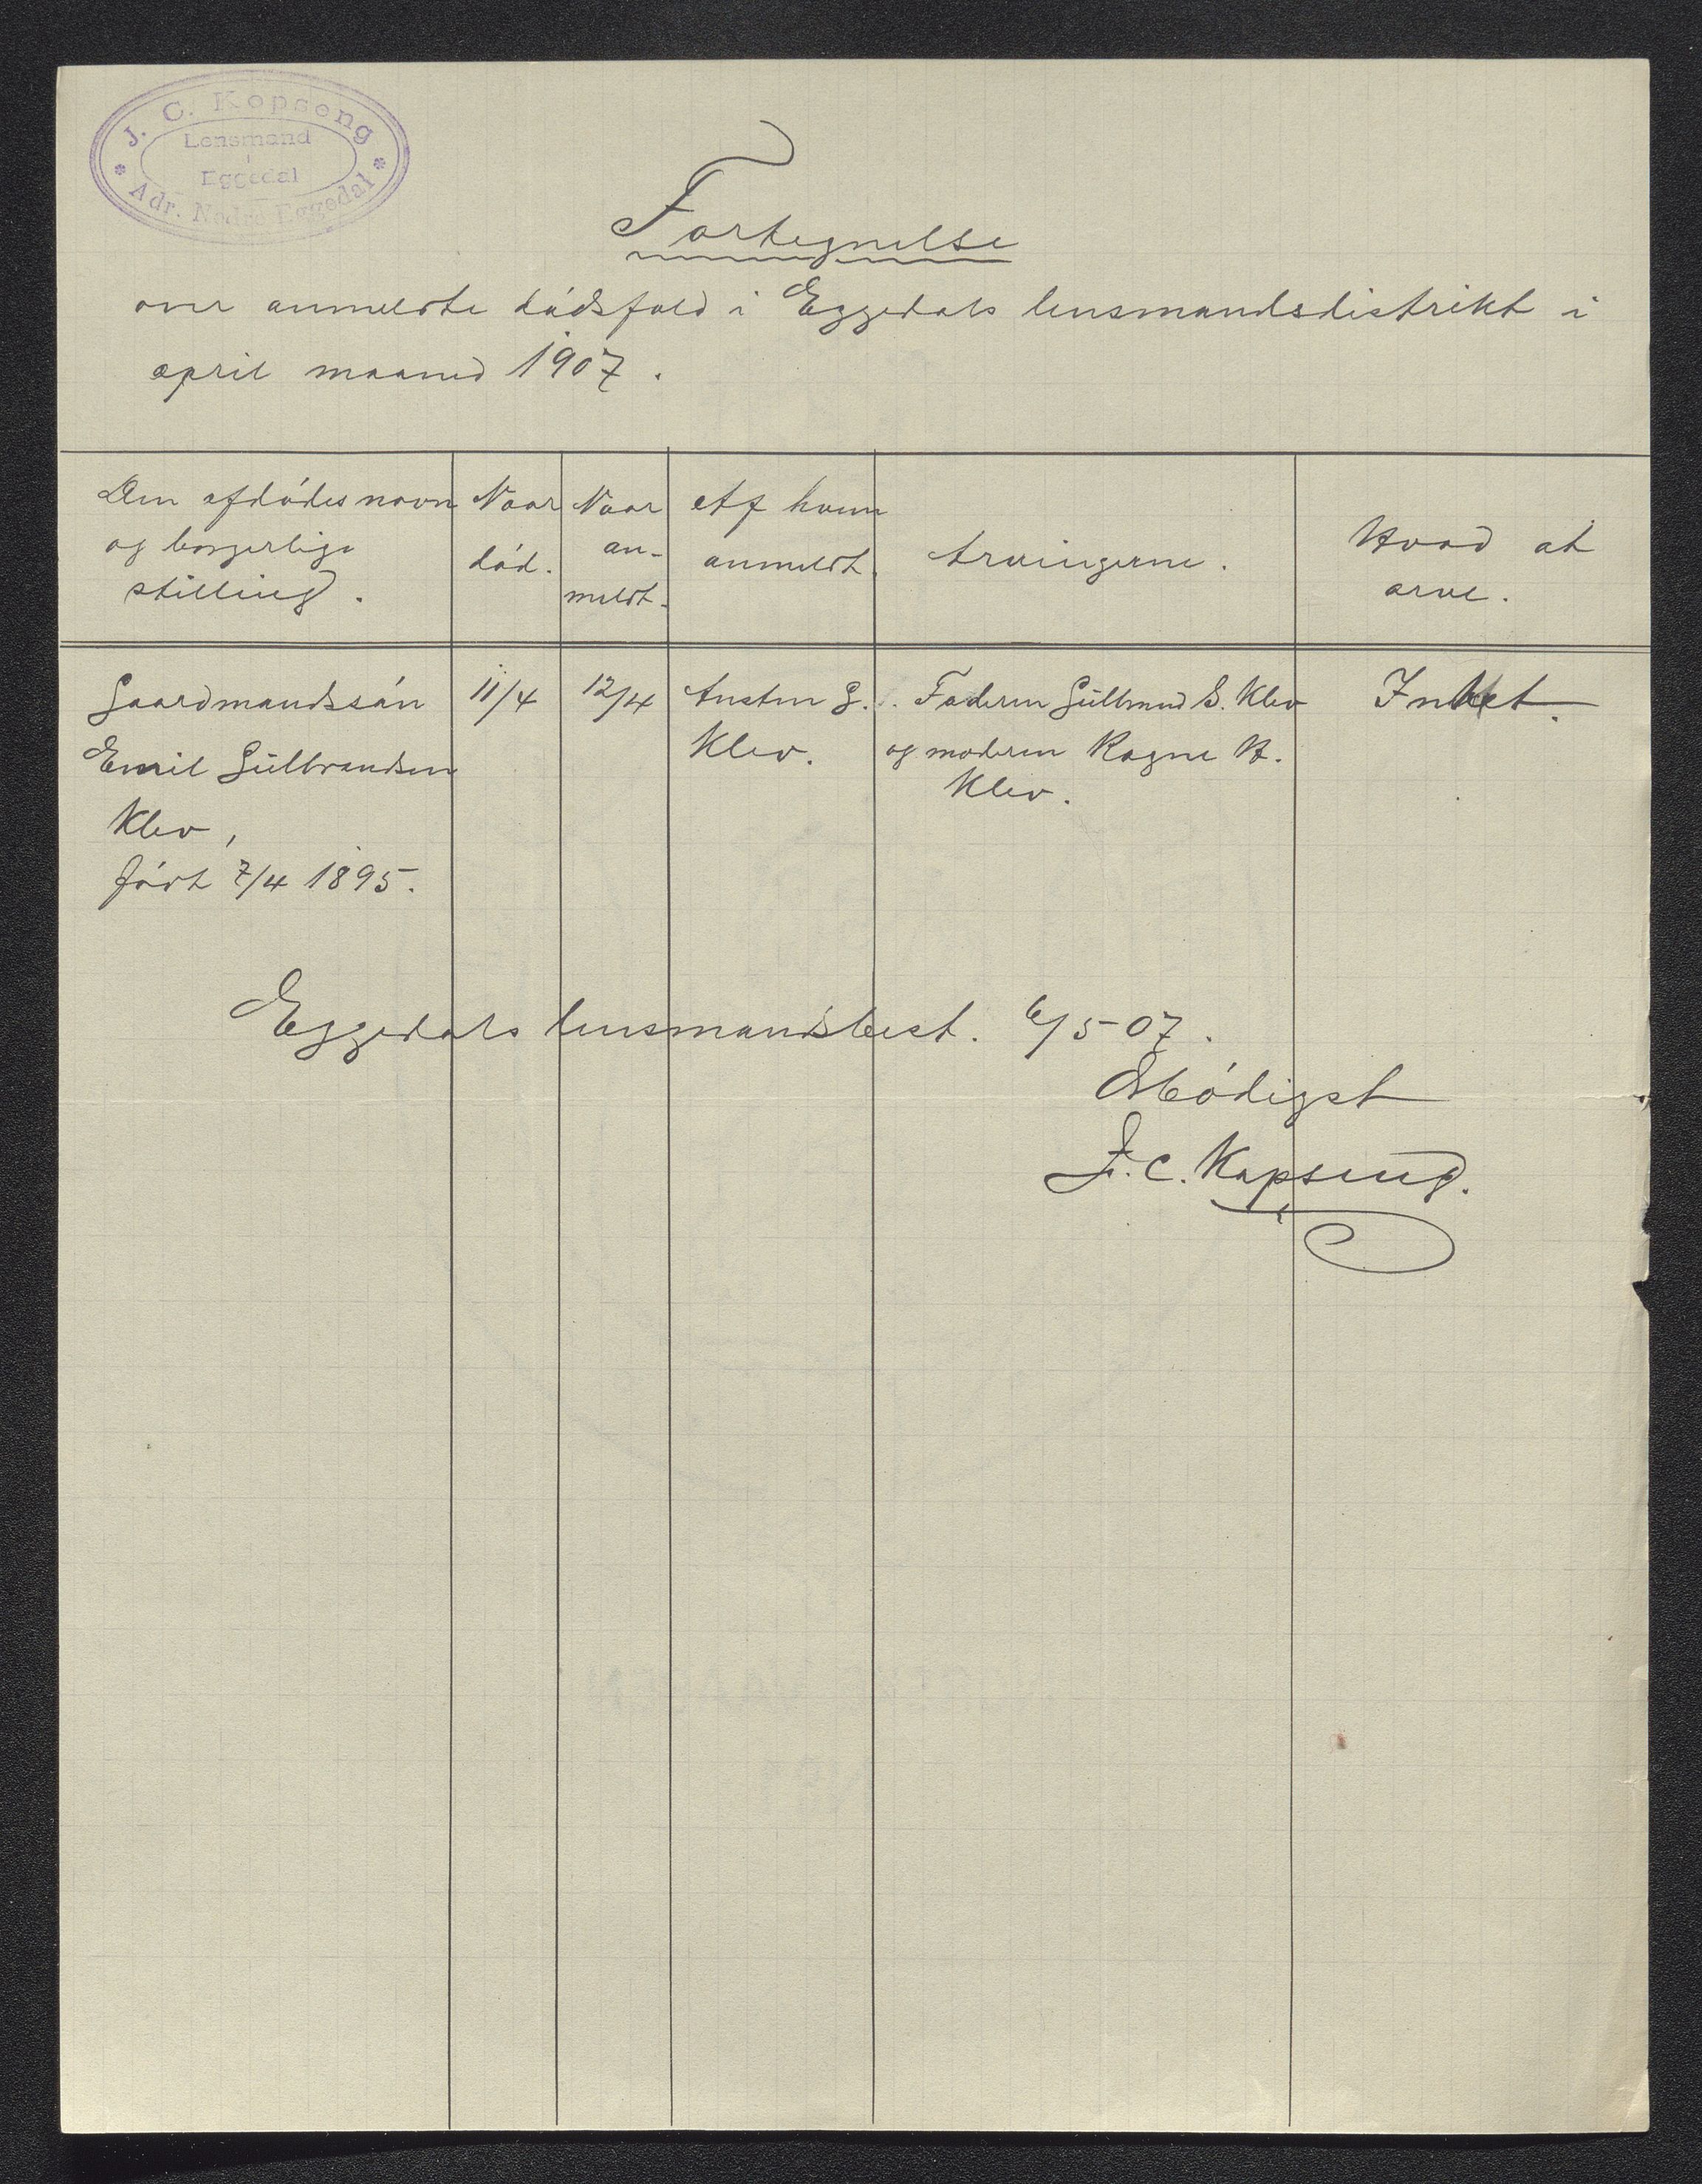 J. C. Kopseng
Lensmand
i
Eggedal
Adr. Nedre Eggedal
Fortegnelse
over anmeldte dødsfald i Eggedals lensmandsdistrikt i
april maaned 1907.
Den afdødes navn og borgerlige stilling.
Naar død.
Naar an-meldt.
Af hvem anmeldt.
Arvingerne.
Hvad at arve.
Gaardmandssøn 11/4 12/4 Austen G. Faderen Gülbrand S. Klev Intet.
Emil Gülbrandsen Klev. og moderen Ragne H.
Klev, Klev.
født 7/4 1895.
Eggedals lensmandsbest. 6/5-07.
Ærbødigst
J. C. Kopseng.